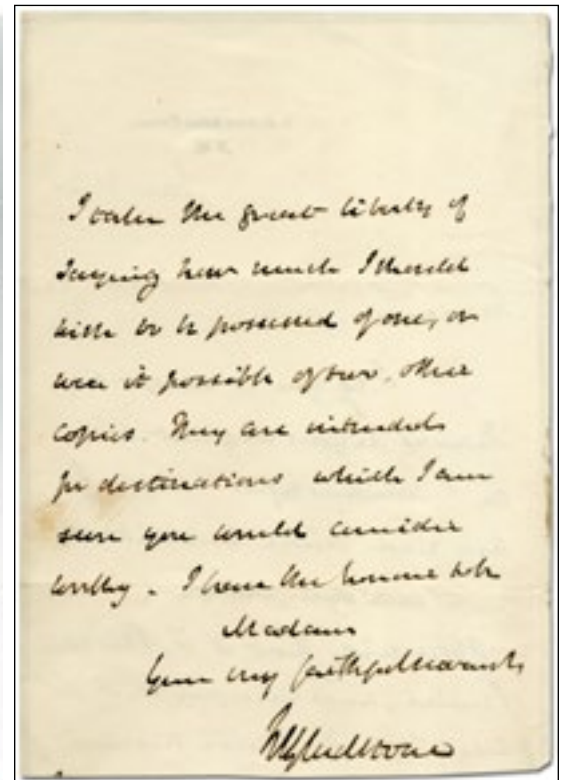 I take the great liberty of
saying how much I should
like to be possessed of one, or
were it possible of two, other
copies. They are intended
for destinations which I am
sure you would consider
worthy. I have the honour to be
Madam
Your very faithful servant
WEGladstone